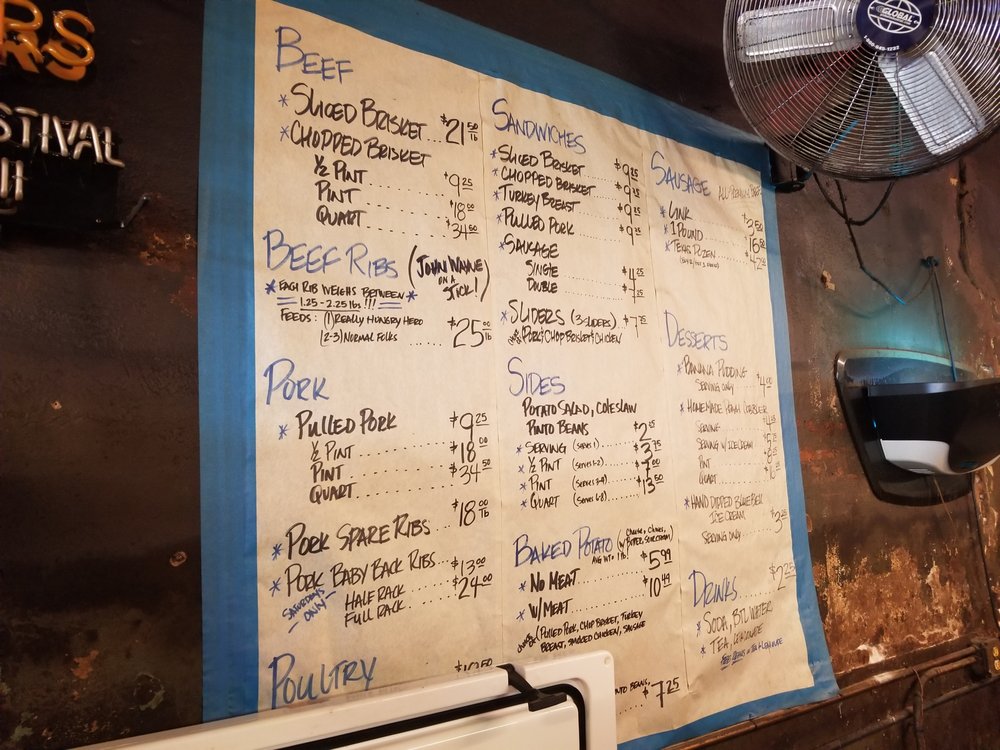 RS
RS
STIVAL
GLOBAL
BEEF
* SLICED BRISKET ... $21.50 lb
* CHOPPED BRISKET
1/2 PINT ... $9.25
PINT ... $18.00
QUART ... $34.50
BEEF RIBS (JOHN WAYNE ON A STICK!)
* EACH RIB WEIGHS BETWEEN *
1.25 - 2.25 lbs !!!
FEEDS: (1) REALLY HUNGRY HERO
(2-3) NORMAL FOLKS ... $25.00 lb
PORK
* PULLED PORK
1/2 PINT ... $9.25
PINT ... $18.00
QUART ... $34.50
* PORK SPARE RIBS ... $18.00 lb
* PORK BABY BACK RIBS
SATURDAYS ONLY
HALF RACK ... $13.00
FULL RACK ... $24.00
POULTRY
SANDWICHES
* SLICED BRISKET ... $9.25
* CHOPPED BRISKET ... $9.25
* TURKEY BREAST ... $9.25
* PULLED PORK ... $9.25
* SAUSAGE
SINGLE ... $4.25
DOUBLE ... $7.25
* SLIDERS (3-SLIDERS) ... $7.75
PORK, CHOP BRISKET, CHICKEN
SIDES
POTATO SALAD, COLESLAW
PINTO BEANS
* SERVING (SERVES 1) ... $2.25
* 1/2 PINT (SERVES 1-2) ... $3.75
* PINT (SERVES 3-4) ... $7.00
* QUART (SERVES 6-8) ... $13.50
BAKED POTATO (CHEESE, CHIVES, BUTTER, SOUR CREAM)
* NO MEAT ... $5.99
* W/ MEAT ... $10.49
(PULLED PORK, CHOP BRISKET, TURKEY
BREAST, SMOKED CHICKEN, SAUSAGE
BEANS,
$7.25
SAUSAGE
* LINK ... $3.50
* 1 POUND
* TEXAS DOZEN
DESSERTS
* BANANA PUDDING
SERVING ONLY ... $4.00
* HOMEMADE COBBLER
SERVING
SERVING W/ ICE CREAM
PINT
QUART
* HAND DIPPED BLUE BELL
ICE CREAM
SERVING ONLY ... $3.25
DRINKS ... $2.25
* SODA, BTL WATER
* TEA, LEMONADE